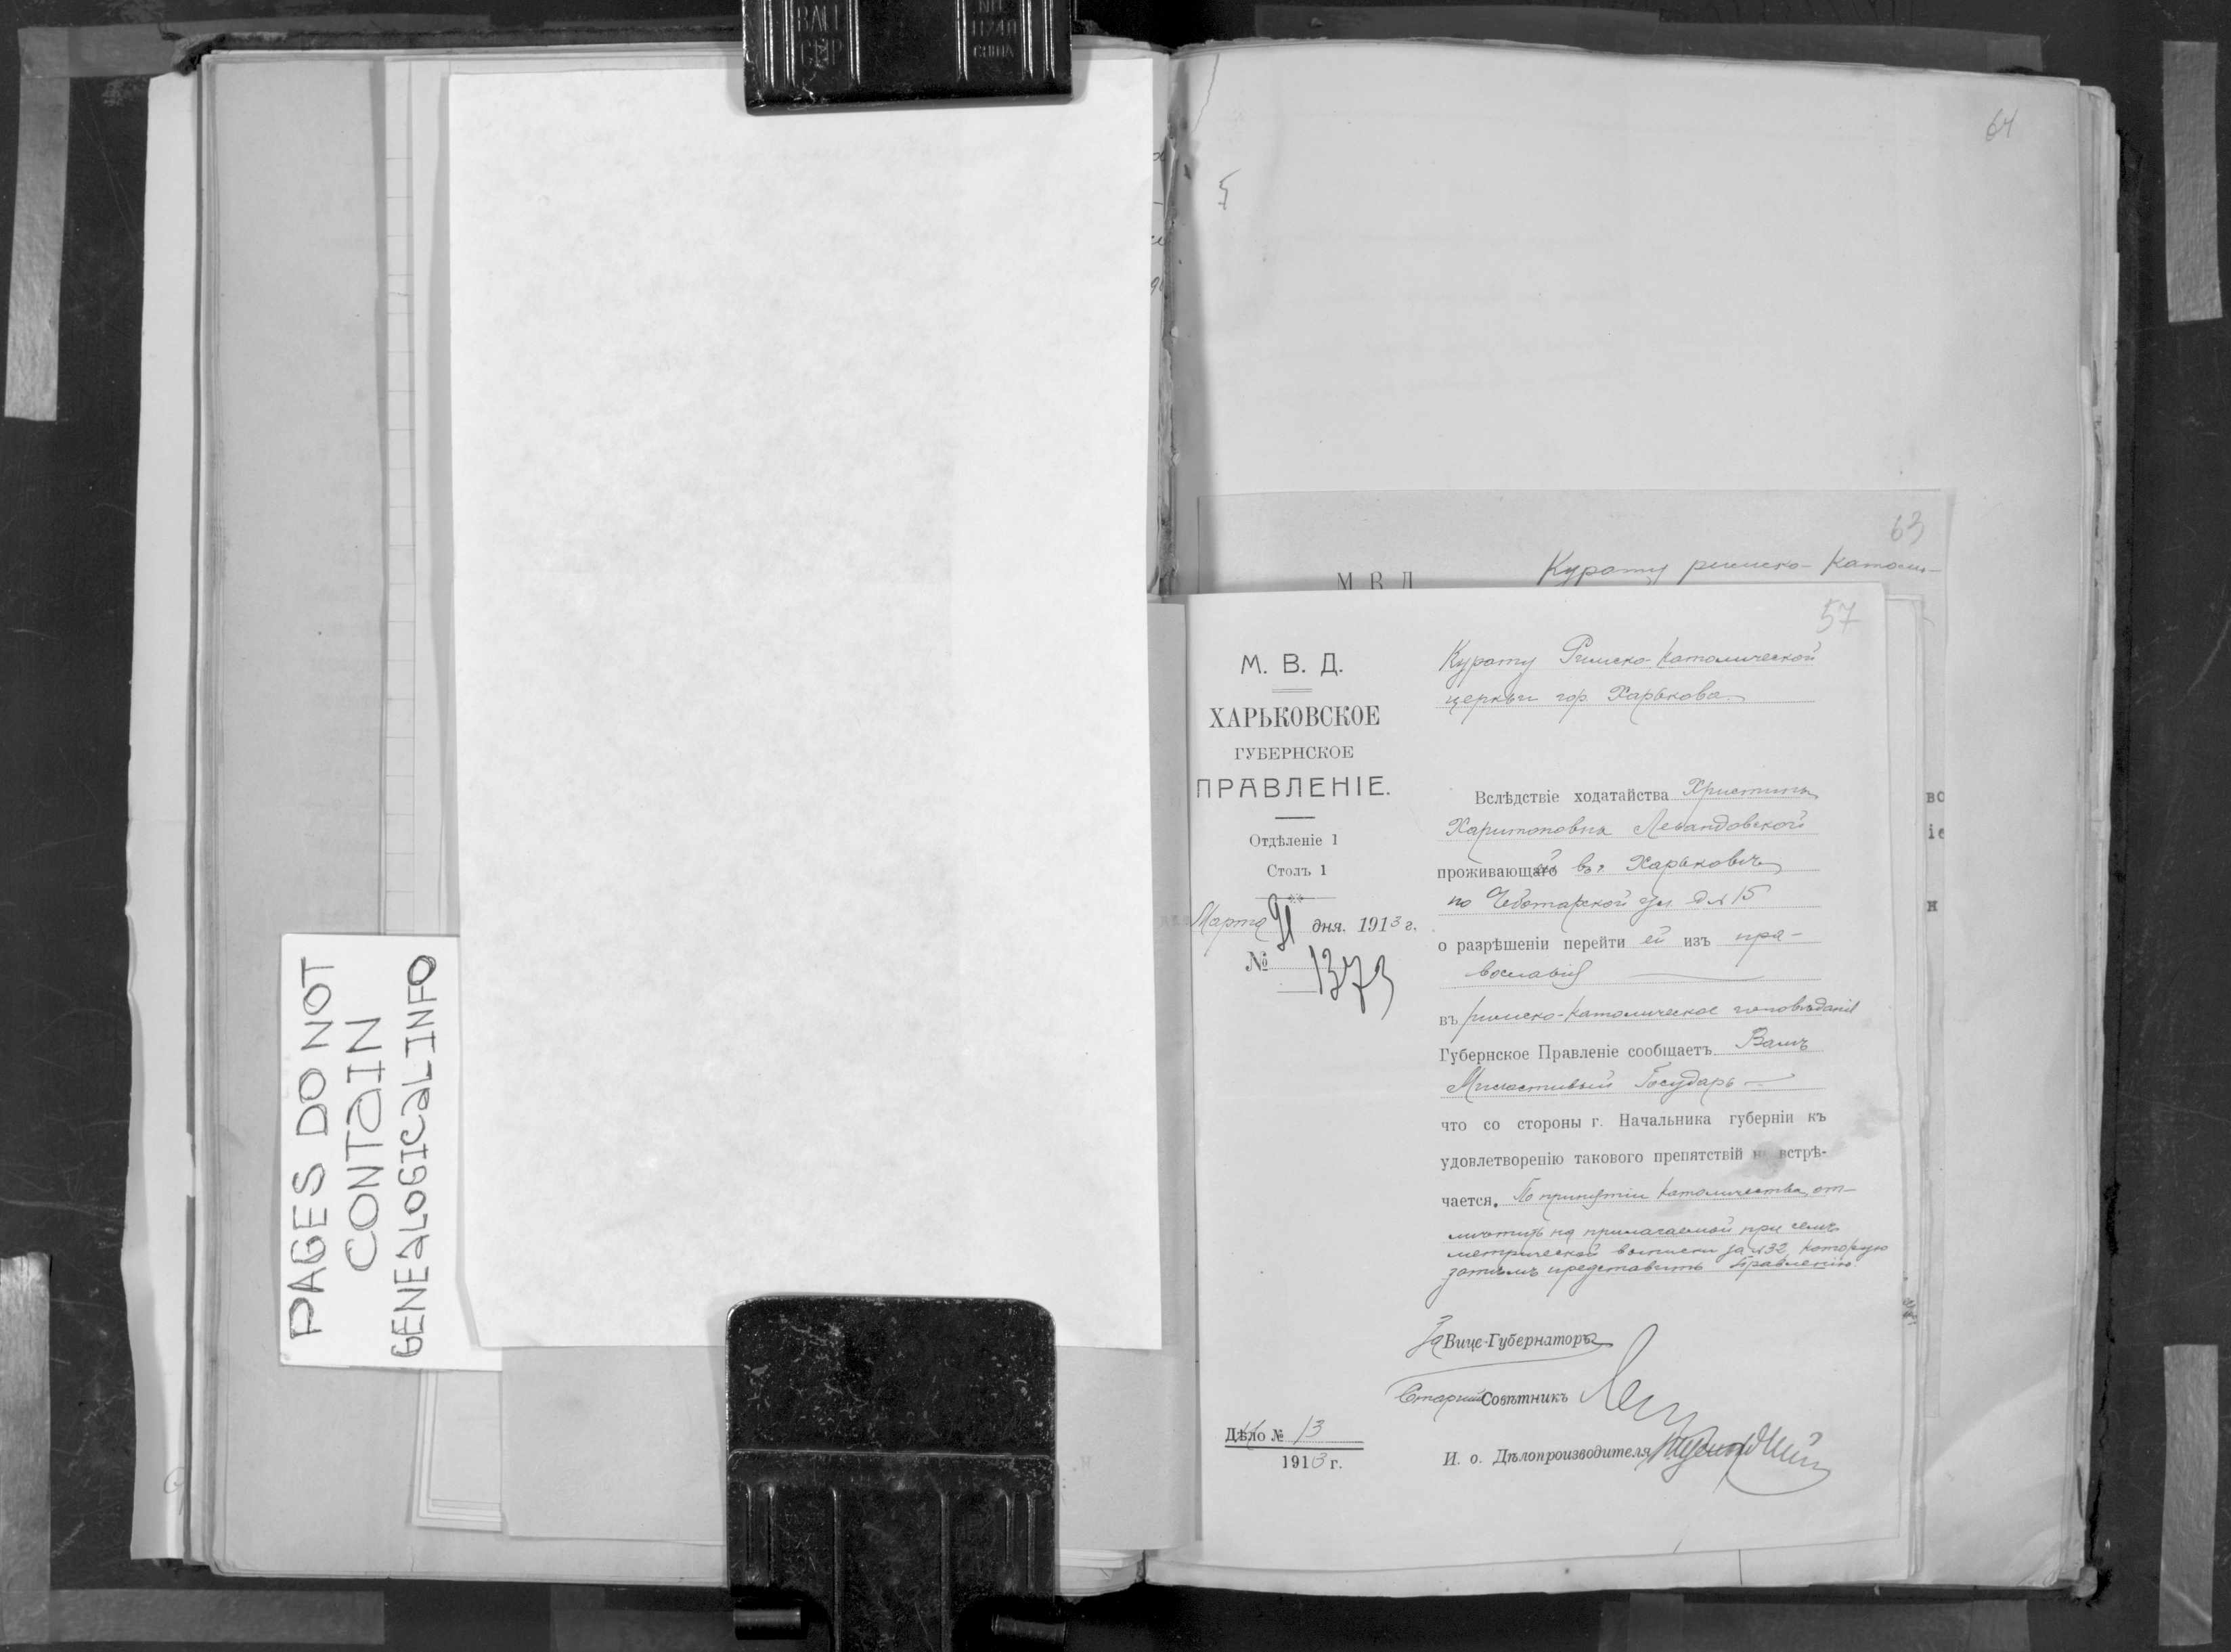 PAGES DO NOT
CONTAIN
GENEALOGICAL INFO
64
63
М В Д
Курату римско-католи-
57
М. В. Д.
ХАРЬКОВСКОЕ
ГУБЕРНСКОЕ
ПРАВЛЕНІЕ.
Отдѣленіе 1
Столъ 1
Марта 21 дня. 1913 г.
№ 1373
Курату Римско-Католической
церкви гор. Харькова
Вслѣдствіе ходатайства Христины
Харитоновны Левандовской
проживающей въ г. Харьковѣ
по Чеботарской ул. д № 15
о разрѣшеніи перейти ей изъ пра-
вославія
въ римско-католическое исповѣданіе
Губернское Правленіе сообщаетъ Вамъ
Милостивый Государь
что со стороны г. Начальника губерніи къ
удовлетворенію такового препятствій не встрѣ-
чается. По принятіи католичества от-
мѣтить на прилагаемой при семъ
метрической выписи за №32, которую
затѣмъ представить Правленію
За Вице-Губернатора
Старшій Совѣтникъ
И. о. Дѣлопроизводителя
Дѣло № 13
1913 г.